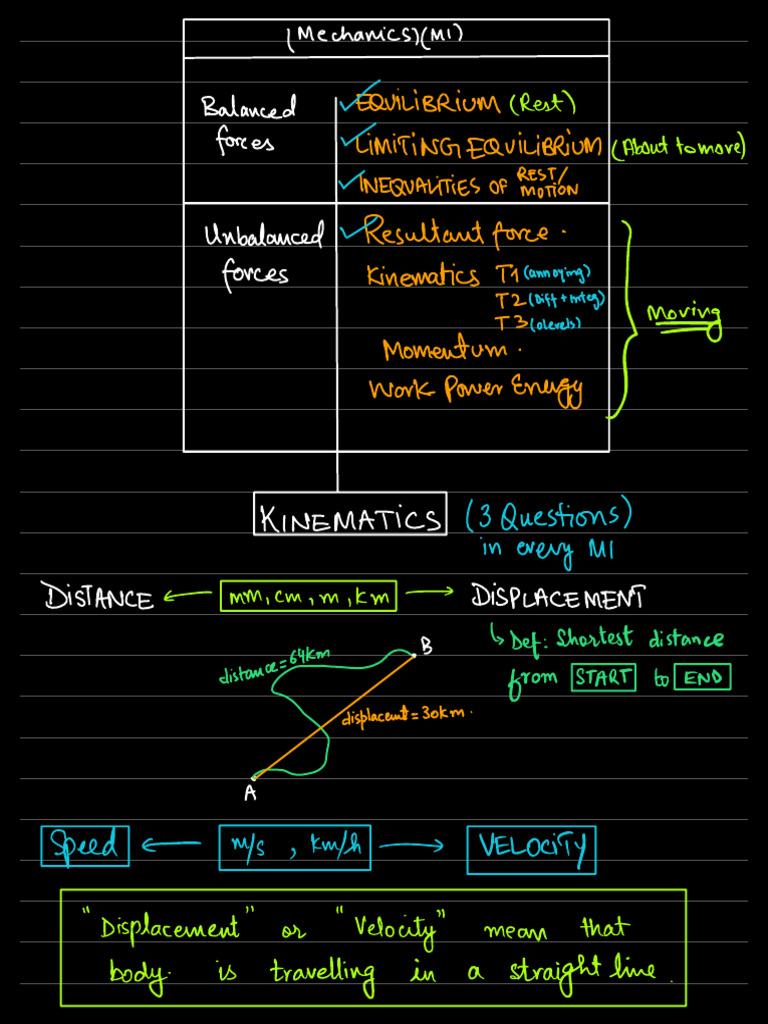 (Mechanics)(M1)
Balanced forces
EQUILIBRIUM (Rest)
LIMITING EQUILIBRIUM (About to move)
INEQUALITIES OF REST/MOTION
Unbalanced forces
Resultant force.
Kinematics T1 (annoying)
T2 (Diff + integ)
T3 (olevels)
Momentum.
Work Power Energy
Moving
KINEMATICS (3 Questions)
in every M1
DISTANCE ← mm, cm, m, km → DISPLACEMENT
↳ Def: Shortest distance
from START to END
B
distance = 64km
displacemt = 30km.
A
Speed ← m/s, km/h → VELOCITY
"Displacement" or "Velocity" mean that
body. is travelling in a straight line.